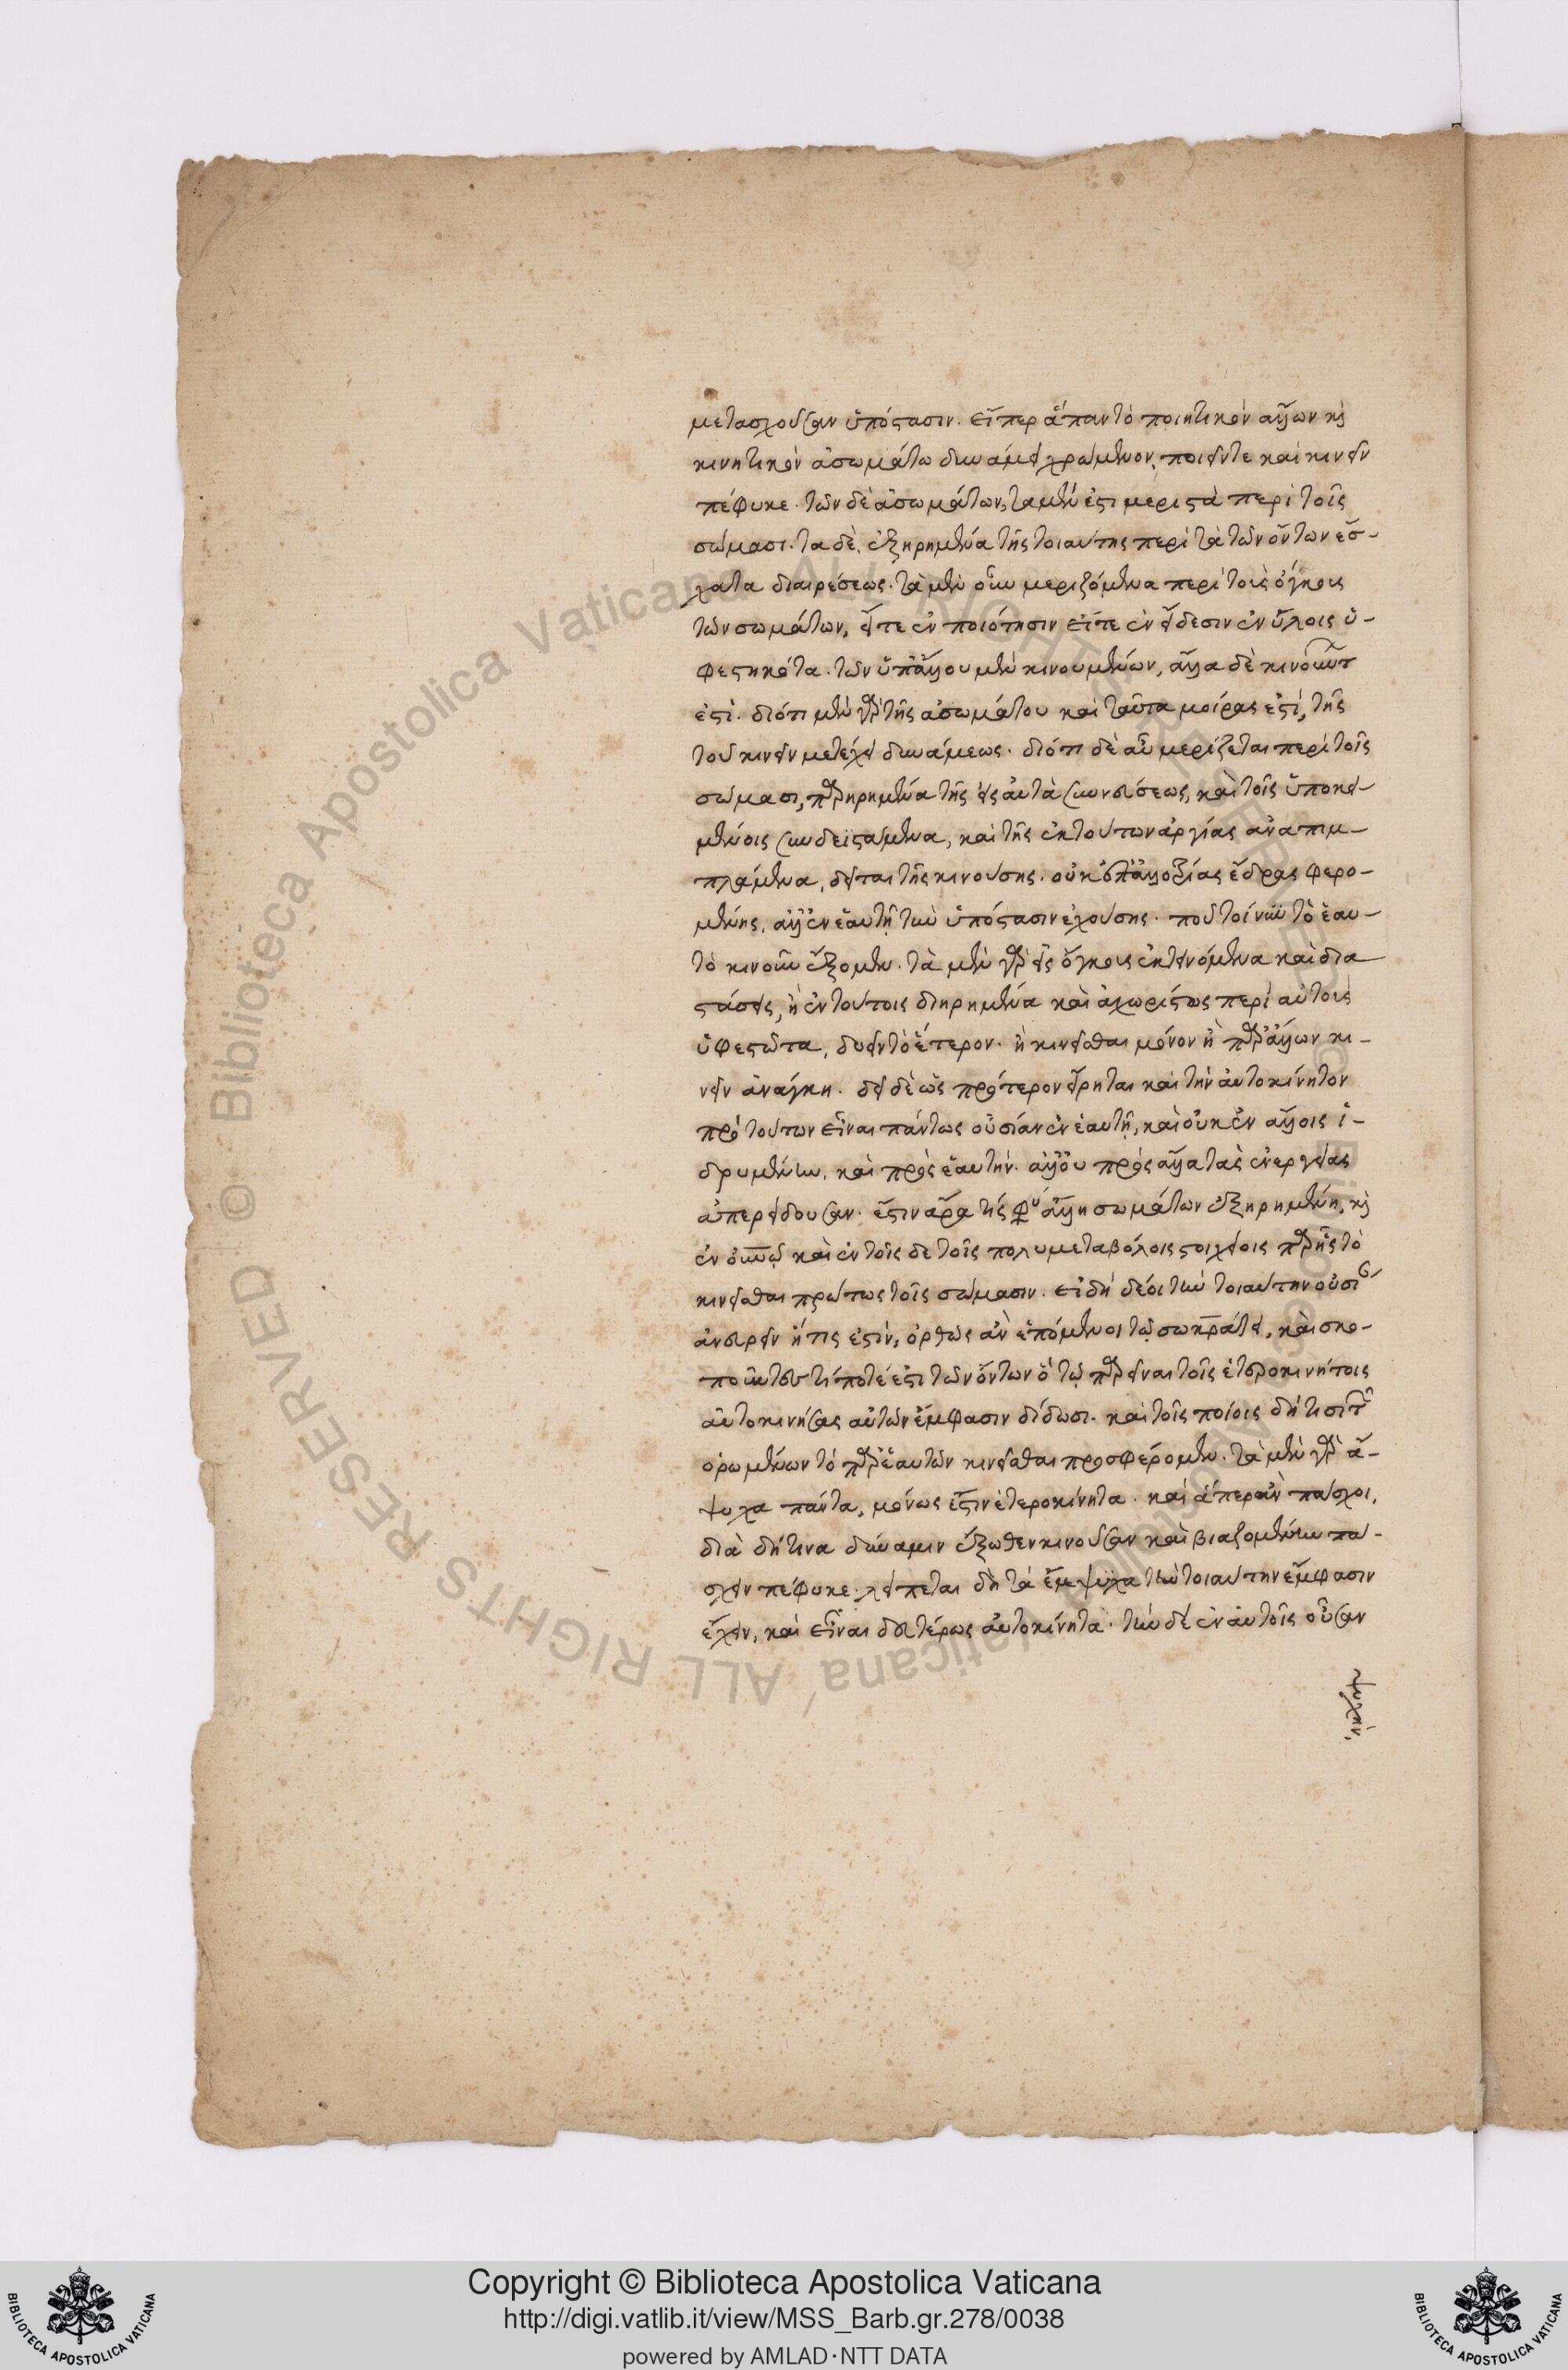 μετασχοῦσαν ὑπόστασιν. εἴπερ ἅπαν τὸ ποιητικὸν ἄλλων καὶ
κινητικὸν ἀσωμάτω δυνάμει χρώμενον, ποιεῖν τε καὶ κινεῖν
πέφυκε. τῶν δὲ ἀσωμάτων, τὰ μέν ἐστι μεριστὰ περὶ τοῖς
σώμασι. τα δὲ, ἐξηρημένα τῆς τοιαύτης περὶ τὰ τῶν ὄντων ἔσ-
χατα διαιρέσεως. τὰ μὲν οὖν μεριζόμενα περὶ τοὺς ὄγκους
τῶν σωμάτων, εἴτε ἐν ποιότησιν εἴτε ἐν εἴδεσιν ἐνύλοις ὑ-
φεστηκότα. τῶν ὑπ' ἄλλου μὲν κινουμένων, ἄλλα δὲ κινούντων
ἐστὶ. διότι μὲν γὰρ τῆς ἀσωμάτου καὶ ταῦτα μοίρας ἐστί, τῆς
τοῦ κινεῖν μετέχει δυνάμεως. διότι δὲ αὖ μερίζεται περὶ τοῖς
σώμασι, παρηρημένα τῆς εἰς αὑτὰ συννεύσεως, καὶ τοῖς ὑποκει-
μένοις συνδιϊστάμενα, καὶ τῆς ἐκ τούτων ἀργίας ἀναπιμ-
πλάμενα, δεῖται τῆς κινούσης. οὐκ ἐπ' ἀλλοτρίας ἕδρας φερο-
μένης, ἀλλ' ἐν ἑαυτῇ τὴν ὑπόστασιν ἐχούσης. ποῦ τοίνυν τὸ ἑαυ-
τὸ κινοῦν ἕξομεν. τὰ μὲν γὰρ εἰς ὄγκους ἐκτεινόμενα καὶ δια
στάσεις, ἢ ἐν τούτοις διῃρημένα καὶ ἀχωρίστως περὶ αὐτοὺς
ὑφεστῶτα, δυεῖν τὸ ἕτερον. ἢ κινεῖσθαι μόνον ἢ παρ' ἄλλων κι-
νεῖν ἀνάγκη. δεῖ δὲ ὡς πρότερον εἴρηται καὶ τὴν αὐτοκίνητον
πρὸ τούτων εἶναι πάντως οὐσίαν ἐν ἑαυτῇ, καὶ οὐκ ἐν ἄλλοις ἱ-
δρυμένην. καὶ πρὸς ἑαυτήν. ἀλλ' οὐ πρὸς ἄλλα τὰς ἐνεργείας
ἀπερείδουσαν. ἔστιν ἄρα τίς φύσις ἄλλη σωμάτων ἐξηρημένη, καὶ
ἐν οὐρανῷ καὶ ἐν τοῖς δε τοῖς πολυμεταβόλοις στοιχείοις παρ' ἧς τὸ
κινεῖσθαι πρώτως τοῖς σώμασιν. εἰ δὴ δέοι τὴν τοιαύτην οὐσίαν
ἀνευρεῖν ἥτις ἐστὶν, ὀρθῶς ἂν ἑπόμενοι τῷ σωκράτει, καὶ σκο-
ποῦντες τί ποτέ ἐστι τῶν ὄντων ὃ τῷ παρεῖναι τοῖς ἑτεροκινήτοις
αὐτοκινήσεως αὐτῶν ἔμφασιν δίδωσι. καὶ τοῖς ποίοις δή τισι τῶν
ὁρωμένων τὸ παρ' ἑαυτῶν κινεῖσθαι προσφέρομεν. τὰ μὲν γὰρ ἄ-
ψυχα πάντα, μόνως ἐστὶν ἑτεροκίνητα. καὶ ἅπερ ἂν πάσχοι,
διὰ δή τινα δύναμιν ἔξωθεν κινοῦσαν καὶ βιαζομένην πά-
σχειν πέφυκε. λείπεται δὴ τὰ ἔμψυχα τὴν τοιαύτην ἔμφασιν
ἔχειν, καὶ εἶναι δευτέρως αὐτοκίνητα. τὴν δὲ ἐν αὐτοῖς οὖσαν
ψυχήν
Copyright © Biblioteca Apostolica Vaticana
http://digi.vatlib.it/view/MSS_Barb.gr.278/0038
powered by AMLAD·NTT DATA
BIBLIOTECA APOSTOLICA VATICANA
BIBLIOTECA APOSTOLICA VATICANA
© Biblioteca Apostolica Vaticana ALL RIGHTS RESERVED © Biblioteca Apostolica Vaticana, ALL RIGHTS RESERVED